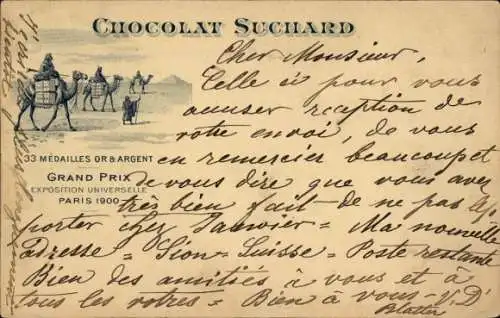 CHOCOLAT SUCHARD
Cher Monsieur,
Celle ci pour vous
accuser reception de
votre envoi, de vous
en remercier beaucoup et
33 MÉDAILLES OR & ARGENT
GRAND PRIX
EXPOSITION UNIVERSELLE
PARIS 1900
de vous dire que vous avez
très bien fait de ne pas
porter chez = Ma nouvelle
adresse = Sion = Suisse = Poste restante
Bien des amitiés à vous et à
tous les votres = Bien à vous = V. D'
Blatter